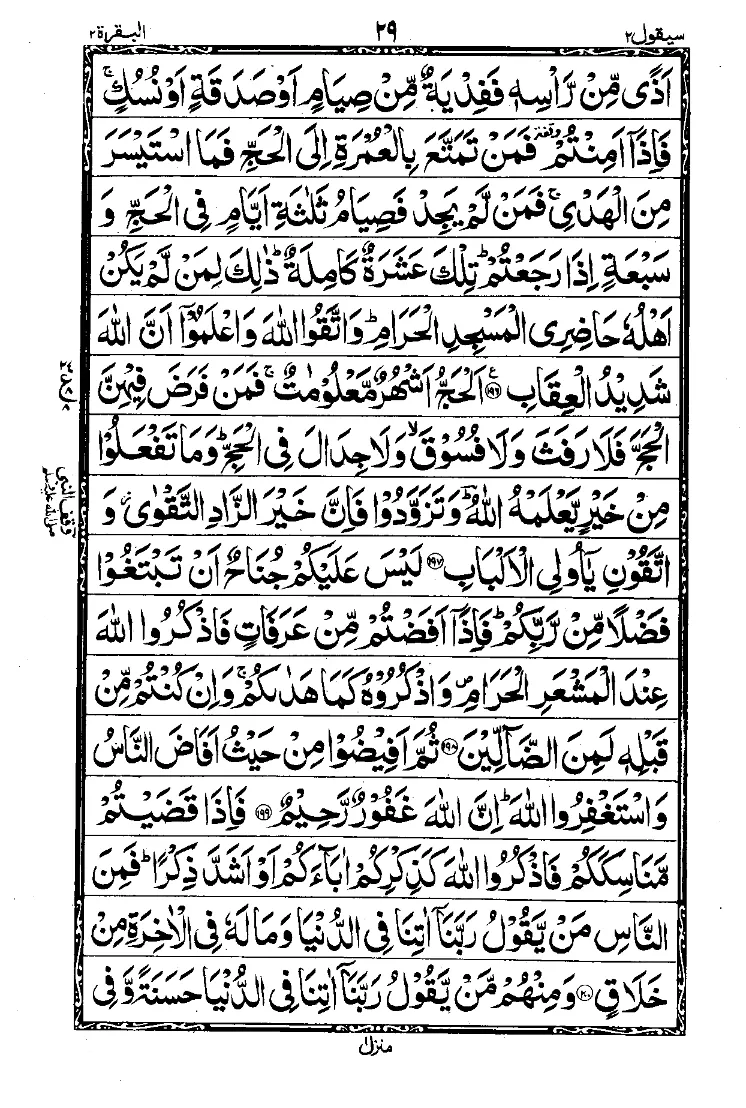 سیقول ۲
۲۹
البقرۃ ۲
اَذًى مِّنْ رَّاْسِهٖ فَفِدْیَةٌ مِّنْ صِیَامٍ اَوْ صَدَقَةٍ اَوْ نُسُكٍ ۚ
فَاِذَاۤ اَمِنْتُمْ ۥ فَمَنْ تَمَتَّعَ بِالْعُمْرَةِ اِلَى الْحَجِّ فَمَا اسْتَیْسَرَ
مِنَ الْهَدْیِ ۚ فَمَنْ لَّمْ یَجِدْ فَصِیَامُ ثَلٰثَةِ اَیَّامٍ فِی الْحَجِّ وَ
سَبْعَةٍ اِذَا رَجَعْتُمْ ؕ تِلْكَ عَشَرَةٌ كَامِلَةٌ ؕ ذٰلِكَ لِمَنْ لَّمْ یَكُنْ
اَهْلُهٗ حَاضِرِی الْمَسْجِدِ الْحَرَامِ ؕ وَاتَّقُوا اللّٰهَ وَاعْلَمُوْۤا اَنَّ اللّٰهَ
شَدِیْدُ الْعِقَابِ ۱۹۶ اَلْحَجُّ اَشْهُرٌ مَّعْلُوْمٰتٌ ۚ فَمَنْ فَرَضَ فِیْهِنَّ
الْحَجَّ فَلَا رَفَثَ وَلَا فُسُوْقَ ۙ وَلَا جِدَالَ فِی الْحَجِّ ؕ وَمَا تَفْعَلُوْا
مِنْ خَیْرٍ یَّعْلَمْهُ اللّٰهُ ؔؕ وَتَزَوَّدُوْا فَاِنَّ خَیْرَ الزَّادِ التَّقْوٰى ؗ وَ
اتَّقُوْنِ یٰۤاُولِی الْاَلْبَابِ ۱۹۷ لَیْسَ عَلَیْكُمْ جُنَاحٌ اَنْ تَبْتَغُوْا
فَضْلًا مِّنْ رَّبِّكُمْ ؕ فَاِذَاۤ اَفَضْتُمْ مِّنْ عَرَفَاتٍ فَاذْكُرُوا اللّٰهَ
عِنْدَ الْمَشْعَرِ الْحَرَامِ ۪ وَاذْكُرُوْهُ كَمَا هَدٰىكُمْ ۚ وَاِنْ كُنْتُمْ مِّنْ
قَبْلِهٖ لَمِنَ الضَّآلِّیْنَ ۱۹۸ ثُمَّ اَفِیْضُوْا مِنْ حَیْثُ اَفَاضَ النَّاسُ
وَاسْتَغْفِرُوا اللّٰهَ ؕ اِنَّ اللّٰهَ غَفُوْرٌ رَّحِیْمٌ ۱۹۹ فَاِذَا قَضَیْتُمْ
مَّنَاسِكَكُمْ فَاذْكُرُوا اللّٰهَ كَذِكْرِكُمْ اٰبَآءَكُمْ اَوْ اَشَدَّ ذِكْرًا ؕ فَمِنَ
النَّاسِ مَنْ یَّقُوْلُ رَبَّنَاۤ اٰتِنَا فِی الدُّنْیَا وَمَا لَهٗ فِی الْاٰخِرَةِ مِنْ
خَلَاقٍ ۲۰۰ وَمِنْهُمْ مَّنْ یَّقُوْلُ رَبَّنَاۤ اٰتِنَا فِی الدُّنْیَا حَسَنَةً وَّ فِی
وقف النبی
صلی اللہ علیہ وسلم
منزل ۱